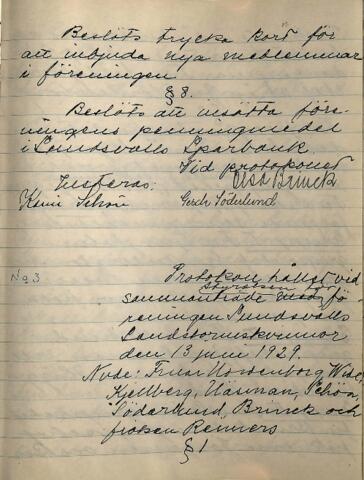 Beslöts trycka kort för
att inbjuda nya medlemmar
i föreningen
§ 8.
Beslöts att insätta före-
ningens penningmedel
i Sundsvalls Sparbank.
Vid protokollet
Justeras: Elsa Brinck
Gerda Söderlund
No 3
Protokoll hållet vid
styrelsen
sammanträde med fö
reningen Sundsvalls
Landstormskvinnor
den 13 juni 1929.
Närv: Fruar
Kjellberg, Nauman, Schön,
Söderlund, Brinck och
fröken Renners
§ 1